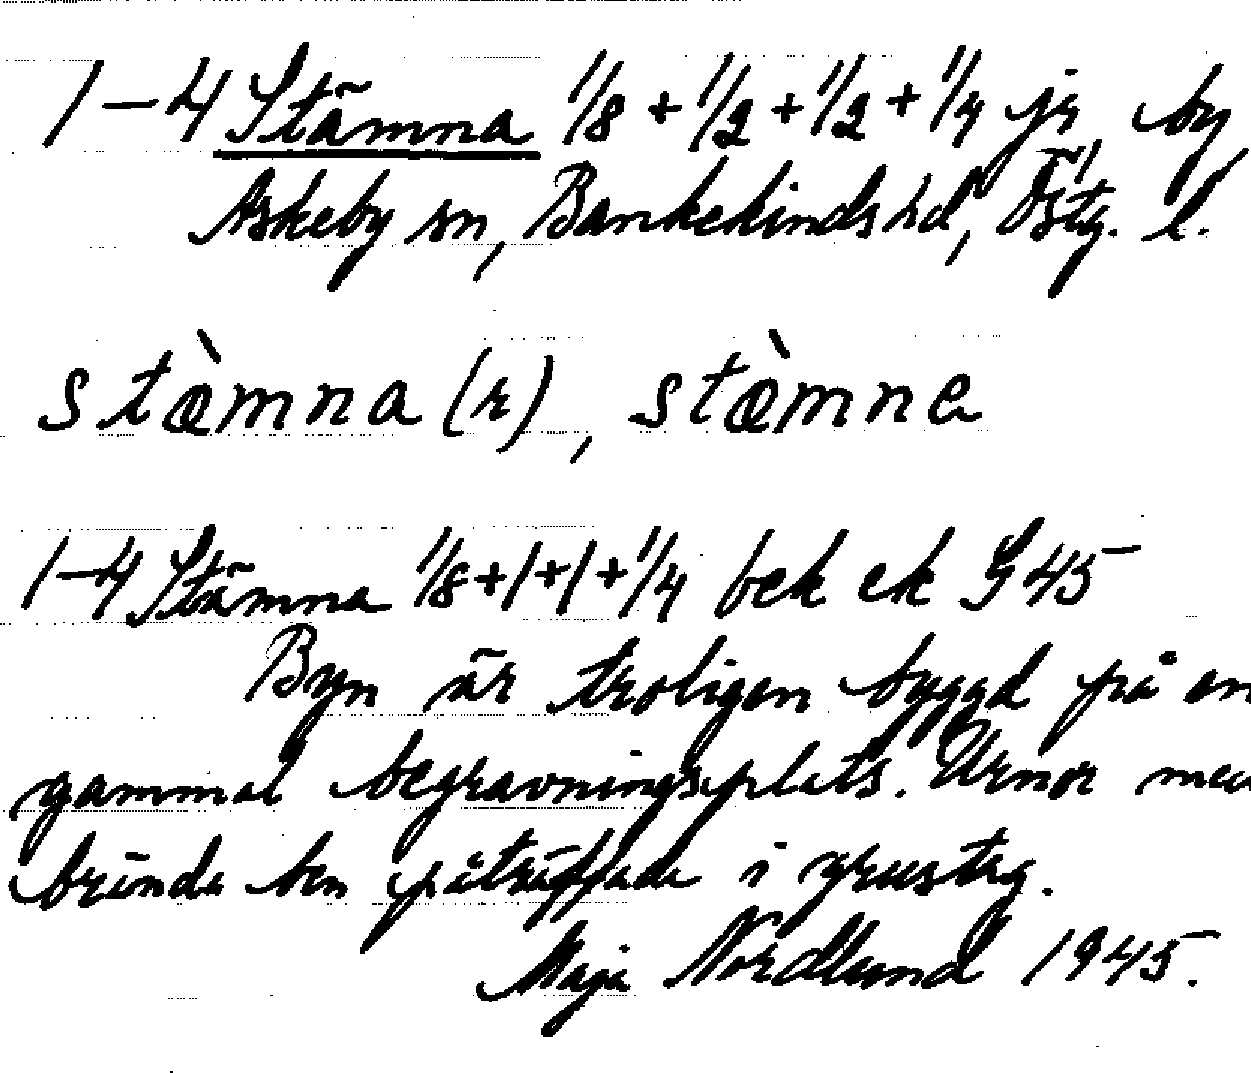 1-4 Stämna 1/8 + 1/2 + 1/2 + 1/4 jr, by
Askeby sn, Bankekinds hd, Östg. l.
stæ̀mna(r), stæ̀mne
1-4 Stämna 1/8+1+1+1/4 bek ek G 45
Byn är troligen byggd på en
gammal begravningsplats. Urnor med
brända ben påträffade i grustag.
Maja Nordlund 1945.